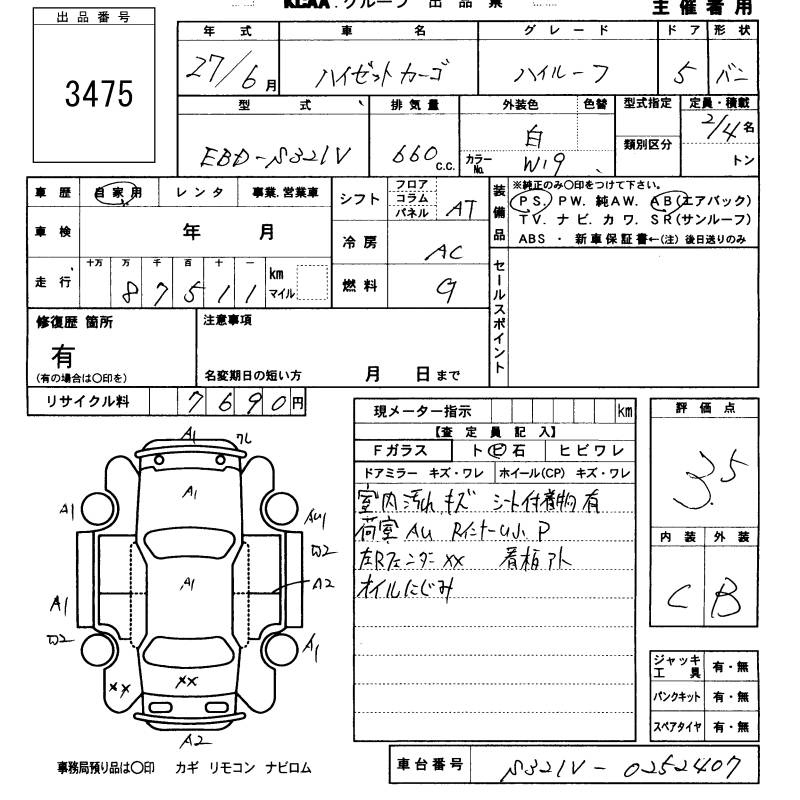 KCAA.グループ 出品票 主催者用
出品番号
3475
年式 車名 グレード ドア 形状
27/6月 ハイゼットカーゴ ハイルーフ 5 バン
型式 排気量 外装色 色替 型式指定 定員・積載
EBD-S321V 660 C.C. 白 2/4名
カラーNo. W19 類別区分 トン
車歴 自家用 レンタ 事業.営業車
シフト フロア コラム パネル AT
装備品 ※純正のみ〇印をつけて下さい。
PS. PW. 純AW. AB(エアバック)
TV. ナビ. カワ. SR(サンルーフ)
ABS ・ 新車保証書←(注) 後日送りのみ
車検 年 月
冷房 AC
走行 十万 万 千 百 十 一
87511 km マイル
燃料 G
セールスポイント
修復歴 箇所
有
(有の場合は〇印を)
注意事項
名変期日の短い方 月 日まで
リサイクル料 7690円
現メーター指示 km
【査定員記入】
Fガラス ト ビ 石 ヒビワレ
ドアミラー キズ・ワレ ホイール(CP) キズ・ワレ
室内汚れ キズ シート付着物有
荷室 AU RインナーU小 P
左Rフェンダー XX 看板アト
オイルにじみ
評価点
3.5
内装 外装
C B
A1 ワレ
A1
A1 AU1
A2
A1
A1
A1
XX XX
A2
ジャッキ工具 有・無
パンクキット 有・無
スペアタイヤ 有・無
事務局預り品は〇印 カギ リモコン ナビロム
車台番号 S321V-0252407